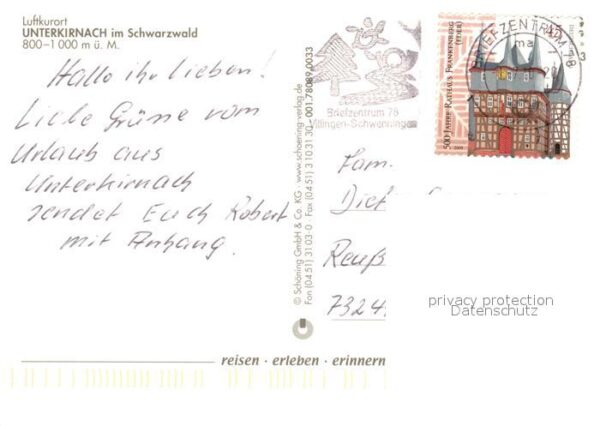 Luftkurort
UNTERKIRNACH im Schwarzwald
800–1 000 m ü. M.
Hallo ihr lieben!
Liebe Grüsse vom
Urlaub aus
Unterkirnach
sendet Euch Robert
mit Anhang.
© Schöning GmbH & Co. KG · www.schoening-verlag.de
Fon (04 51) 31 03-0 · Fax (04 51) 3 10 31 30 · 001.78089.0033
Briefzentrum 78
Villingen-Schwenningen
BRIEFZENTRUM 78
500 JAHRE RATHAUS FRANKENBERG
(EDER)
Fam.
Reuß
7324
privacy protection
Datenschutz
reisen · erleben · erinnern